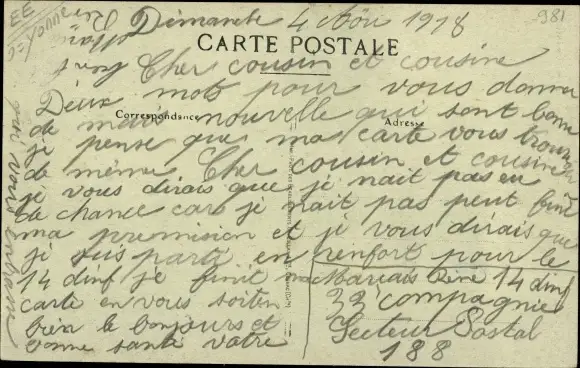 981
EE
Yonne
Dimanche 4 Aôu 1918
CARTE POSTALE
Cher cousin et cousine
Deux mots pour vous donner
Correspondance
Adresse
de mais nouvelle qui sont bonne
je pense que ma carte vous trouvera
de même. Cher cousin et cousine
je vous dirais que je nait pas eu
de chance car je nait pas peut finir
ma premision et je vous dirais que
je suis parti en renfort pour le
14 dinf je finit ma
carte en vous soiten
bien le bonjours et
bonne santé Votre
Marcais René 14 dinf
32 compagnie
Secteur Postal
188
qui vous